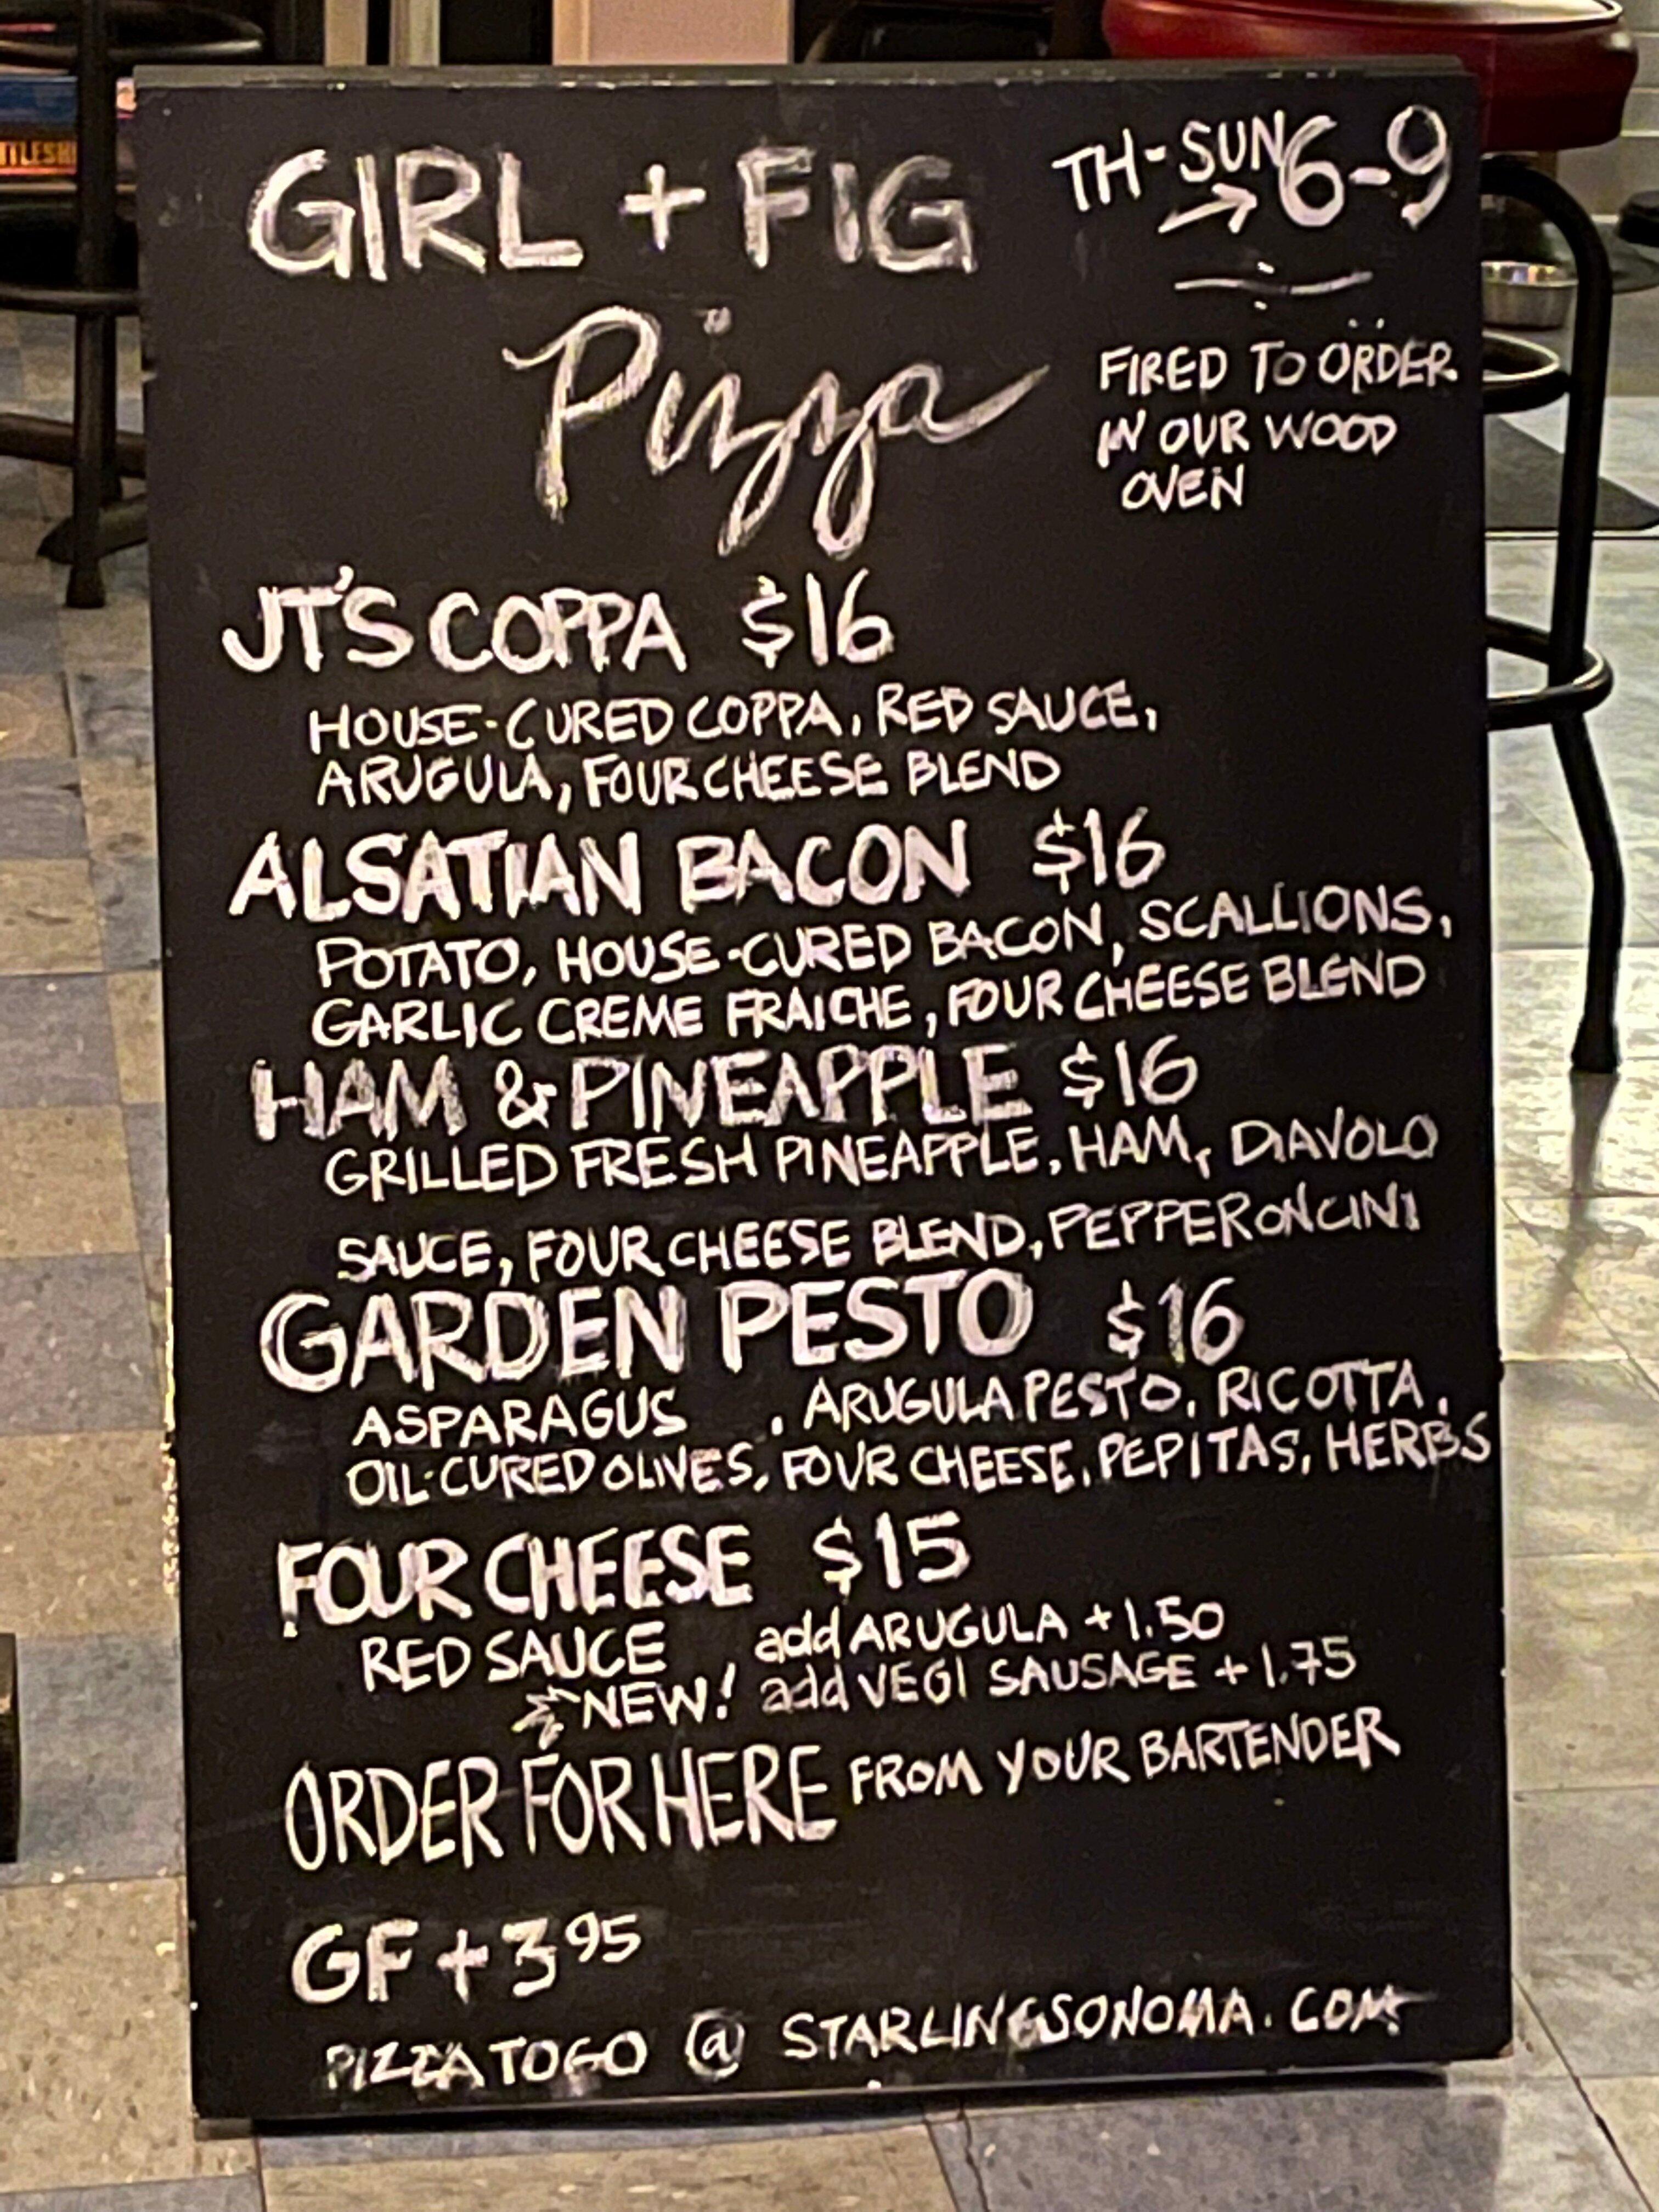 GIRL + FIG
Pizza
TH-SUN 6-9
→
FIRED TO ORDER
IN OUR WOOD
OVEN
JT'S COPPA $16
HOUSE-CURED COPPA, RED SAUCE,
ARUGULA, FOUR CHEESE BLEND
ALSATIAN BACON $16
POTATO, HOUSE-CURED BACON, SCALLIONS,
GARLIC CREME FRAICHE, FOUR CHEESE BLEND
HAM & PINEAPPLE $16
GRILLED FRESH PINEAPPLE, HAM, DIAVOLO
SAUCE, FOUR CHEESE BLEND, PEPPERONCINI
GARDEN PESTO $16
ASPARAGUS , ARUGULA PESTO, RICOTTA,
OIL-CURED OLIVES, FOUR CHEESE, PEPITAS, HERBS
FOUR CHEESE $15
RED SAUCE add ARUGULA +1.50
NEW! add VEGI SAUSAGE +1.75
ORDER FOR HERE FROM YOUR BARTENDER
GF +3.95
PIZZA TOGO @ STARLINGSONOMA.COM